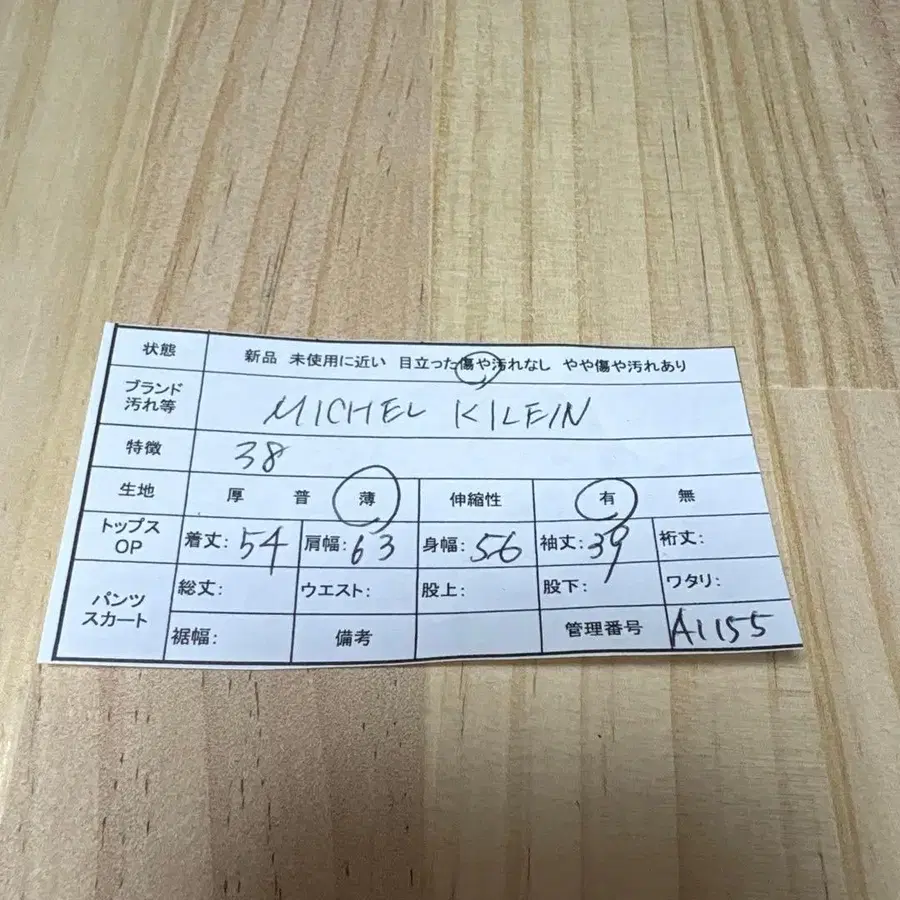 状態 新品 未使用に近い 目立った傷や汚れなし やや傷や汚れあり
ブランド
汚れ等 MICHEL KILEIN
特徴 38
生地 厚 普 薄 伸縮性 有 無
トップス
OP 着丈: 54 肩幅: 63 身幅: 56 袖丈: 39 裄丈:
パンツ
スカート 総丈: ウエスト: 股上: 股下: ワタリ:
裾幅: 備考 管理番号 A1155